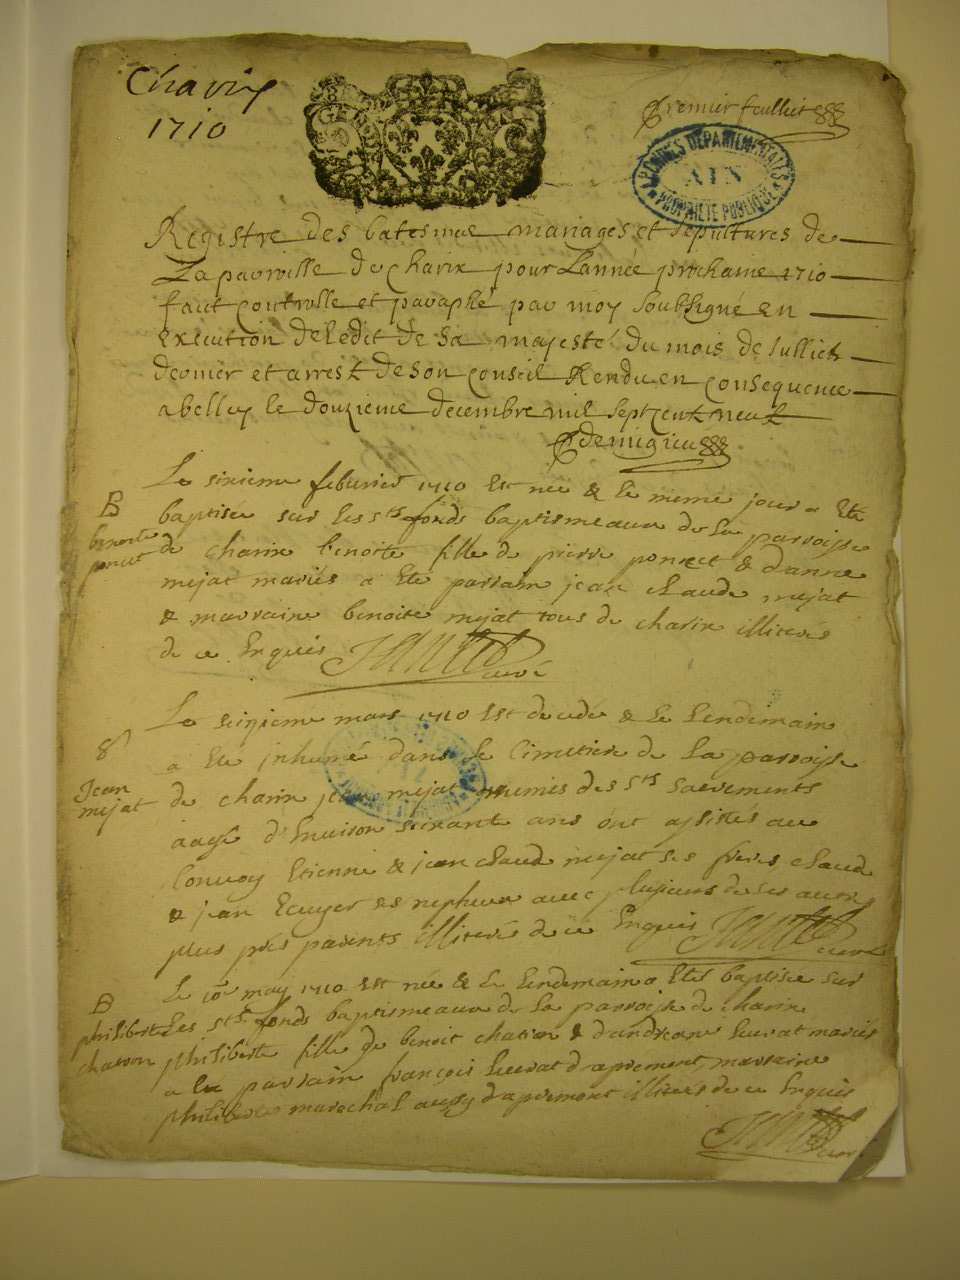 Charix
1710
Premier feulliet
ARCHIVES DEPARTEMENTALES
AIN
PROPRIETE PUBLIQUE
Registre des batesme mariages et sepultures de
La parroisse de charix pour Lannée prochaine 1710
faict controlle et paraphé par moy soubsigné en
execution deledit de sa majesté du mois de Julliet
dernier et arrest de son conseil Rendu en consequence
a belley le douzieme decembre mil sept cent neuf
demigieu
B
benoite
poncet
Le sixieme febvrier 1710 est née & le meme jour a été
baptisée sur les sts fonds baptismeaux de la parroisse
de charix benoite fille de pierre poncet & d'anne
mejat mariés a été parrain jean claude mejat
& marraine benoite mejat tous de charix illiterés
de ce Enquis curé
S
Jean
mejat
Le seizieme mars 1710 est decedé & le lendemain
a été inhumé dans le cimetiere de la parroisse
de charix jean mejat munis des sts sacrements
aagé d'Environ soixante ans ont assistés au
Convoy Etienne & jean claude mejat ses freres claude
& jean Ecuyer ses nepheux avec plusieurs de ses autres
plus près parents illiterés de ce Enquis curé
B
philiberte
chatron
Le 10e may 1710 est née & le lendemain a été baptisée sur
Les sts fonds baptismeaux de la parroisse de charix
philiberte fille de benoit & d'andreane Levrat mariés
a été parrain françois Levrat d'apremont, marraine
philiberte marechal aussy d'apremont illiterés de ce Enquis
curé